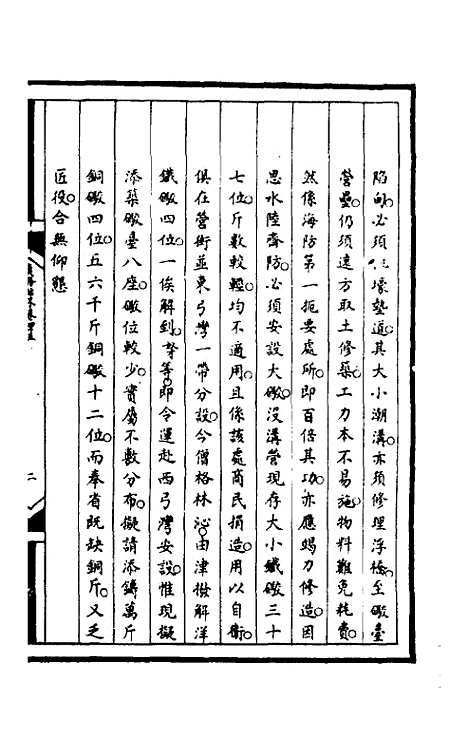 陷甸。必須壕墊道。其大小潮溝。亦須修理浮橋。至礮臺
營壘。仍須遠方取土修築。工力本不易施。物料難免耗費。
然係海防第一扼要處所。即百倍其功。亦應竭力修造。因
思水陸齊防。必須安設大礮。沒溝營現存大小鐵礮三十
七位。斤數較輕。均不適用。且係該處商民捐造。用以自衞。
俱在營街並東弓灣一帶分設。今僧格林沁。由津撥解洋
鐵礮四位。一俟解到。等。即令運赴西弓灣安設。惟現擬
添築礮臺八座。礮位較少。實屬不敷分布。擬請添鑄萬斤
銅礮四位。五六千斤銅礮十二位。而奉省既缺銅斤。又乏
匠役。合無仰懇
二